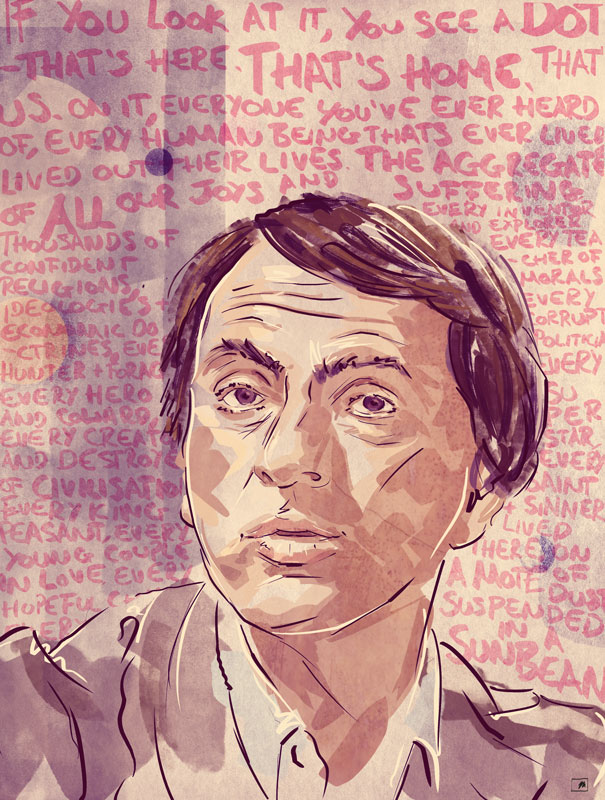 IF YOU LOOK AT IT, YOU SEE A DOT
-THAT'S HERE. THAT'S HOME. THAT
US. ON IT, EVERYONE YOU'VE EVER HEARD
OF, EVERY HUMAN BEING THATS EVER LIVED
LIVED OUT THEIR LIVES. THE AGGREGATE
OF ALL OUR JOYS AND SUFFERING
THOUSANDS OF
CONFIDENT
RELIGIONS,
IDEOLOGIES +
ECONOMIC DO
-CTRINES, EVE
HUNTER + FORAG
EVERY HERO
AND COWARD
EVERY CREAT
AND DESTROY
OF CIVILISATION
EVERY KING +
PEASANT, EVERY
YOUNG COUPLE
IN LOVE EVERY
HOPEFUL CH
EVERY INVENTOR
AND EXPLORER
EVERY TEA
-CHER OF
MORALS
EVERY
CORRUPT
POLITICIA
EVERY
SU
PER
STAR
EVERY
SAINT
+ SINNER
LIVED
THERE ON
A MOTE OF
DUST
SUSPENDED
IN A
SUNBEAM